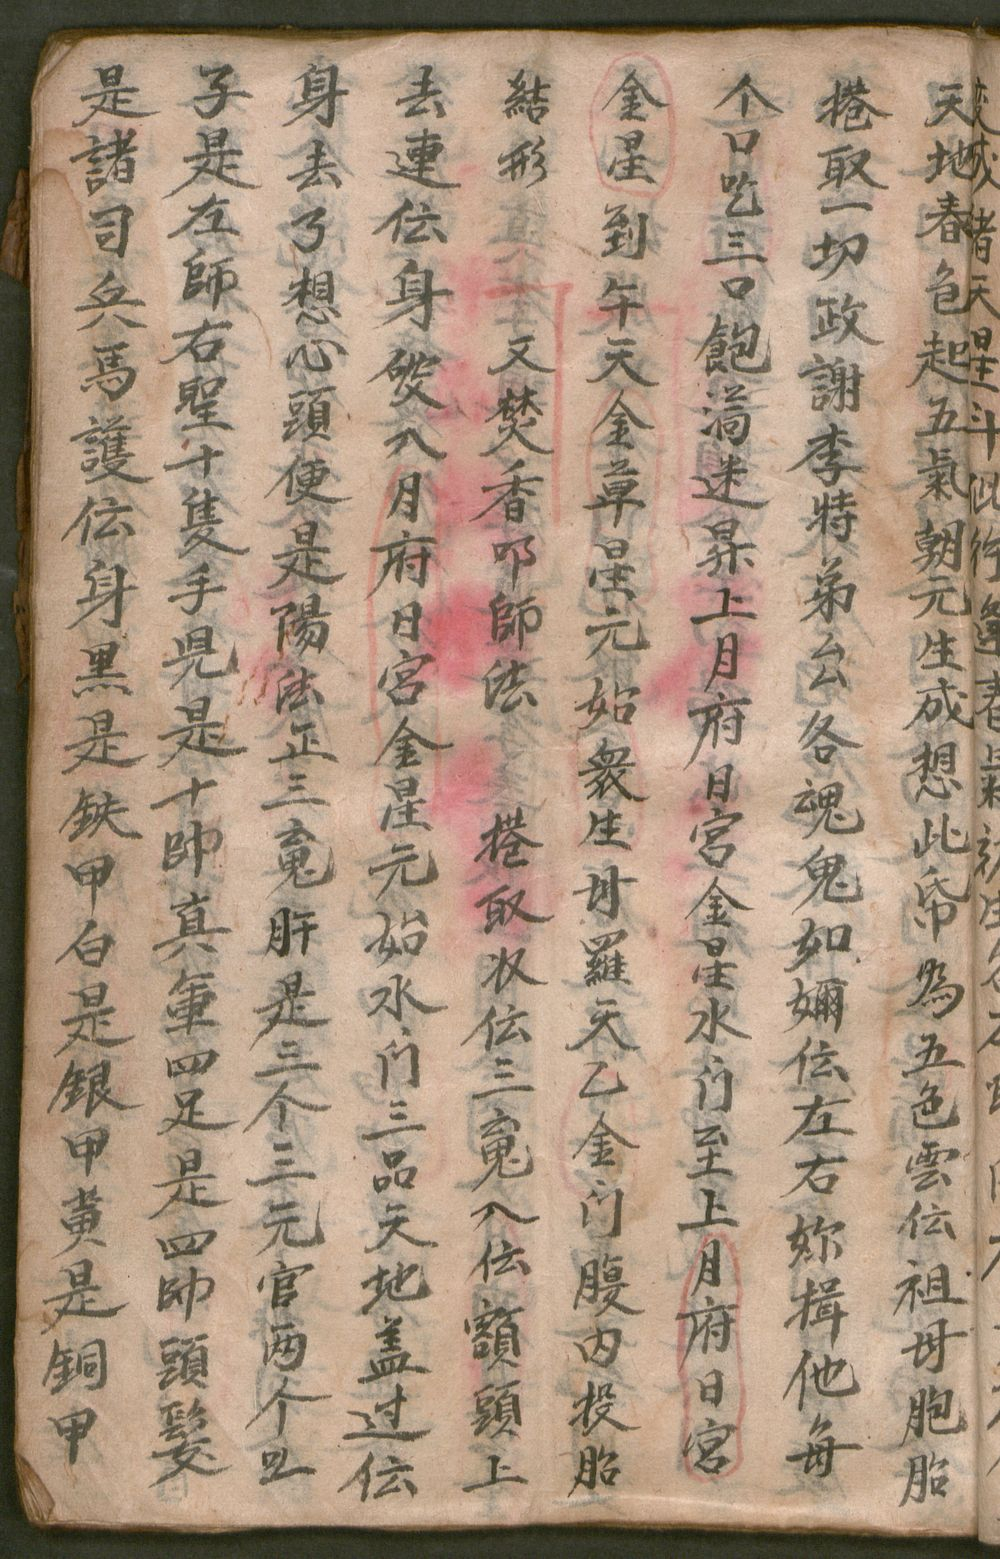 天地春色起五氣朝元生成想此帋為五色雲伝祖母胞胎
捲取一切政謝李特弟公各魂鬼如嬭伝左右妳揖他每
个口吃三口飽满迷昇上月府日宮金星水门至上月府日宮
金星到午天金草星元始衆生母羅天乙金门腹内投胎
結形又焚香叩師法捲取状伝三䰟入伝額頭上
去連伝身變入月府日宮金星元始水门三品天地盖过伝
身去了想心頭便是陽法正三䰟肝是三个三元官两个
子是左師右聖十隻手是十帥真軍四足是四帥頭髮
是諸司兵馬護伝身黑是鉄甲白是銀甲黄是銅甲